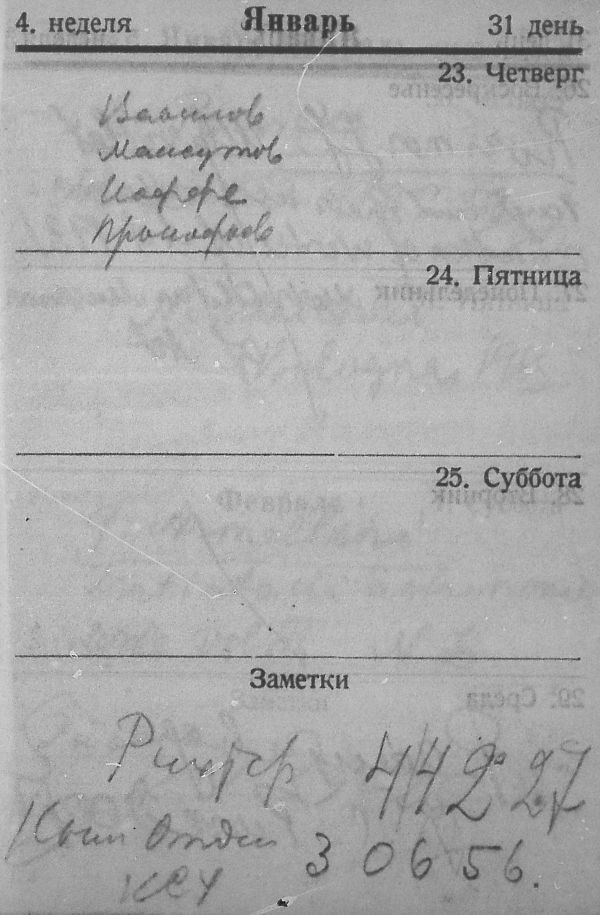 4. неделя Январь 31 день
23. Четверг
Вавилов
Мансуров
Иоффе
Прокофьев
24. Пятница
25. Суббота
Заметки
Рихтер 4 42 27
3 06 56.